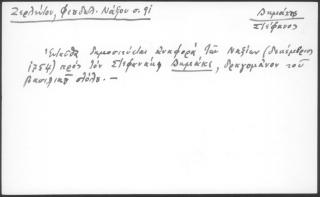 Ζερλέντου, Φεουδαλ. Νάξου σ. 91
Δημάκης
Στέφανος
Ἐνταῦθα δημοσιεύεται ἀναφορὰ τῶν Ναξίων (Δεκέμβριος
1754) πρὸς τὸν Στεφανάκη Δημάκη, δραγομάνον τοῦ
βασιλικοῦ στόλου. —